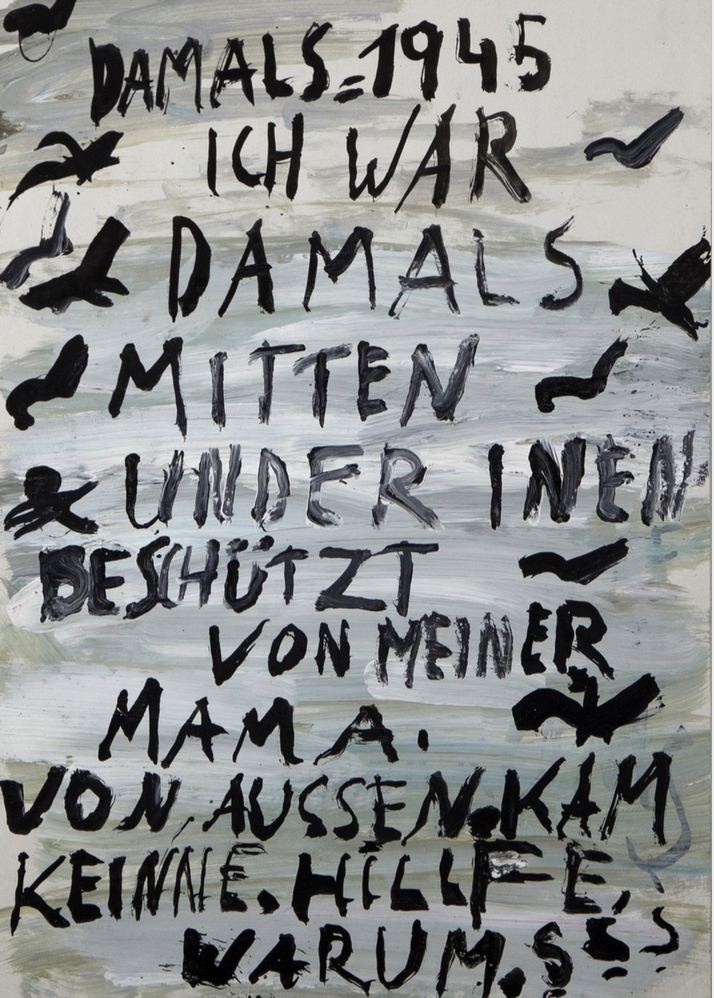 DAMALS=1945
ICH WAR
DAMALS
MITTEN
UNDER INEN
BESCHÜTZT
VON MEINER
MAMA.
VON AUSSEN.KAM
KEINNE.HILLFE,
WARUM.S